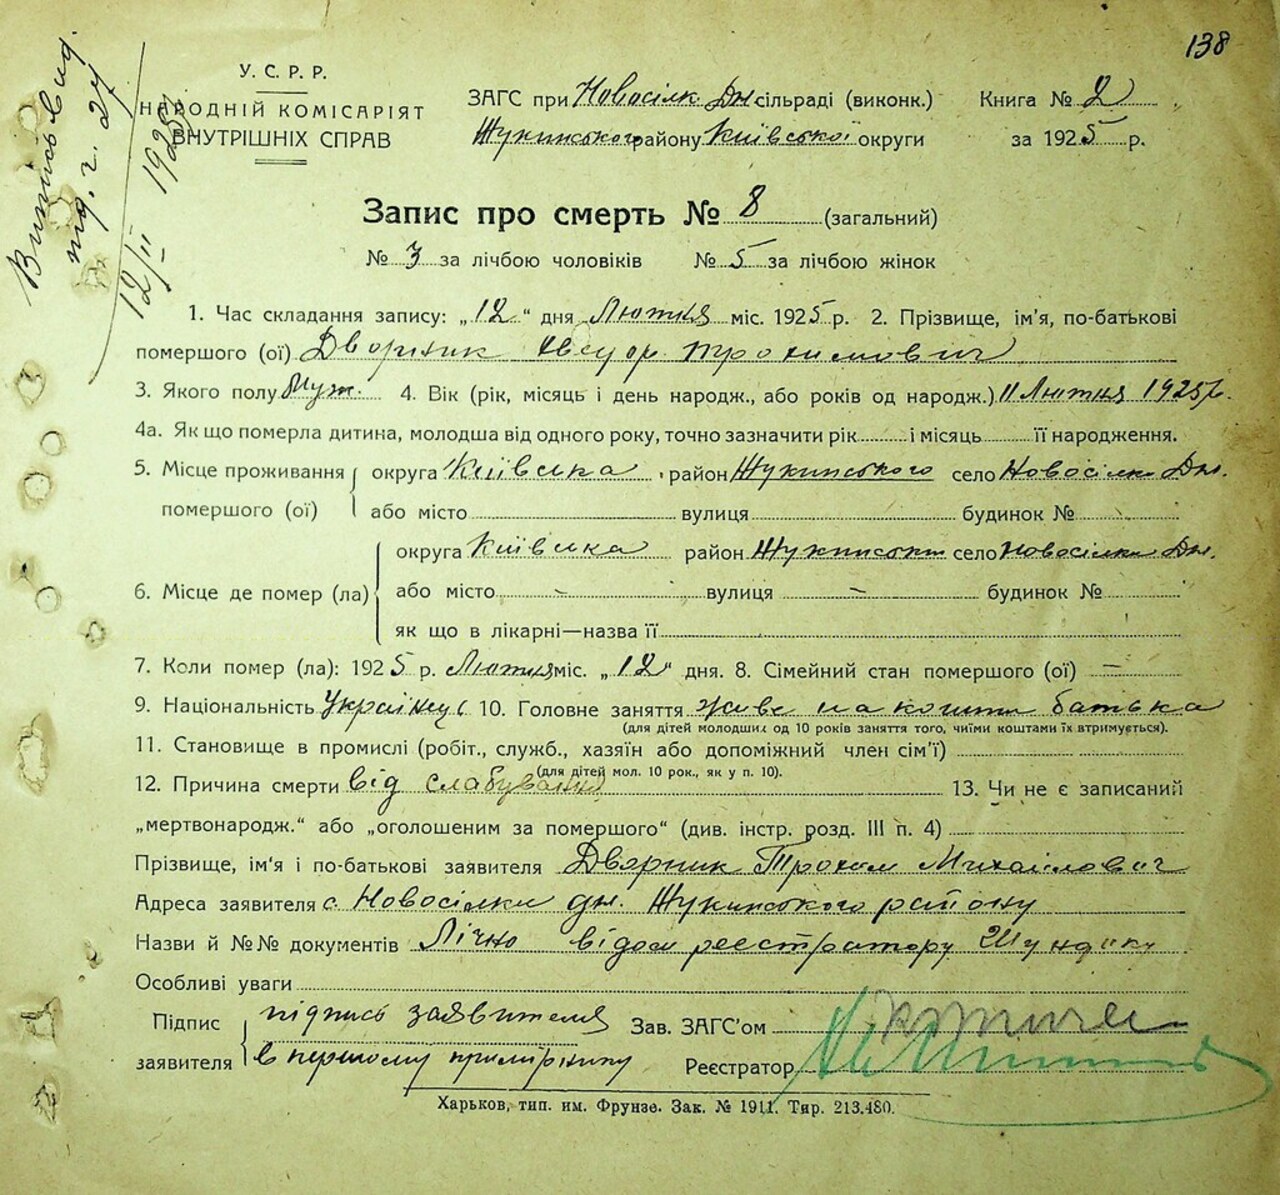 138
У. С. Р. Р.
НАРОДНІЙ КОМІСАРІЯТ
ВНУТРІШНІХ СПРАВ
12/II 1925
ЗАГС при Новосілк. Дн сільраді (виконк.) Книга № 2
Жукинського району Київської округи за 1925 р.
Запис про смерть № 8 (загальний)
№ 3 за лічбою чоловіків № 5 за лічбою жінок
1. Час складання запису: „12“ дня Лютня міс. 1925 р. 2. Прізвище, ім’я, по-батькові
помершого (ої) Дворник Трохимович
3. Якого полу Муж. 4. Вік (рік, місяць і день народж., або років од народж.) 11 Лютня 1925 р.
4а. Як що померла дитина, молодша від одного року, точно зазначити рік і місяць її народження.
5. Місце проживання помершого (ої) округа Київська район Жукинського село Новосілки Дн.
або місто вулиця будинок №
6. Місце де помер (ла) округа Київська район Жукинськ село Новосілки Дн.
або місто – вулиця – будинок №
як що в лікарні—назва її
7. Коли помер (ла): 1925 р. Лютня міс. „12“ дня. 8. Сімейний стан помершого (ої) –
9. Національність Українец 10. Головне заняття живе на кошти батька
(для дітей молодших од 10 років заняття того, чиїми коштами їх втримується).
11. Становище в промислі (робіт., служб., хазяїн або допоміжний член сім’ї)
(для дітей мол. 10 рок., як у п. 10).
12. Причина смерти від слабування 13. Чи не є записаний
„мертвонародж.“ або „оголошеним за помершого“ (див. інстр. розд. III п. 4)
Прізвище, ім’я і по-батькові заявителя Дворник Трохим Михайлович
Адреса заявителя с. Новосілки дн. Жукинського району
Назви й №№ документів Лічно відом реєстратору
Особливі уваги
Підпис заявителя підпись заявителя
в першому примірнику
Зав. ЗАГС’ом
Реєстратор
Харьков, тип. им. Фрунзе. Зак. № 1911. Тир. 213.480.